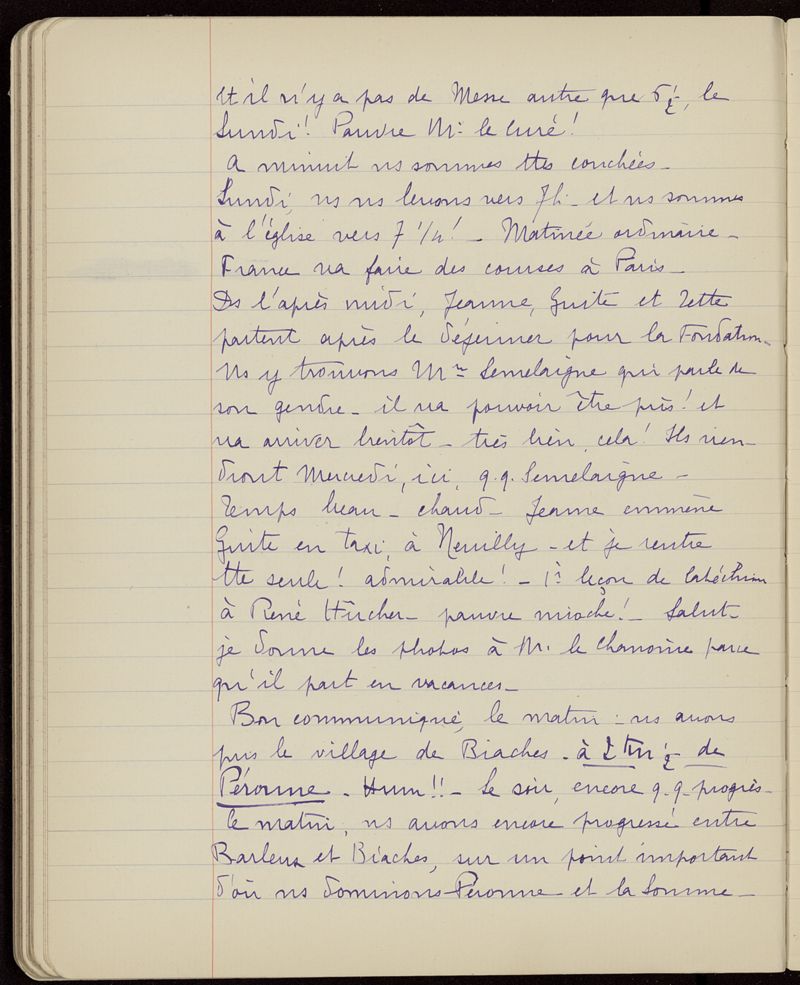 Et il n'y a pas de Messe autre que 6 ½, le
Lundi! Pauvre Mr le Curé!
A minuit ns sommes ttes couchées_
Lundi, ns ns levons vers 7h_ et ns sommes
à l'église vers 7 1/4! _ Matinée ordinaire_
France va faire des courses à Paris_
Ds l'après midi, Jeanne, Guite et Zette
partent après le déjeuner pour la Fondation_
Ns y trouvons Mr Semelaigne qui parle de
son gendre_ il va pouvoir être pris! et
va arriver bientôt_ très bien, cela! Ils vien-
dront Mercredi, ici, q.q. Semelaigne_
Temps beau_ chaud_ Jeanne emmène
Guite en taxi, à Neuilly_ et je rentre
tte seule! admirable! _ 1è leçon de Catéchisme
à René Hücher_ pauvre mioche! _ Salut_
je donne les photos à M. le Chanoine parce
qu'il part en vacances_
Bon communiqué, le matin: ns avons
pris le village de Biaches_ à ½ de
Péronne_ Hum!! _ Le soir, encore q.q. progrès_
le matin, ns avons encore progressé entre
Barleux et Biaches, sur un point important
d'où ns dominons Péronne_ et la Somme_